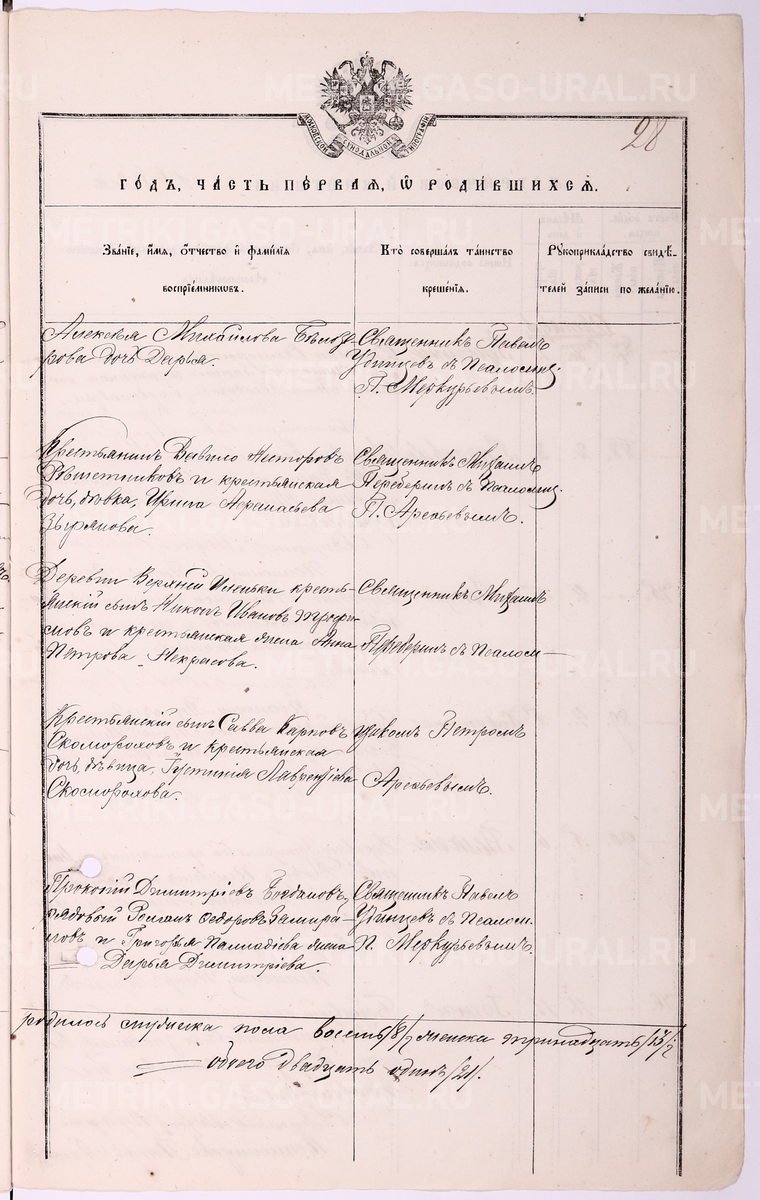 28
ДУХОВСКОЙ СѴНОДАЛЬНОЙ ТИПОГРАФІИ
ГОДЪ, ЧАСТЬ ПЕРВАЯ, Ѡ РОДИВШИХСЯ.
Званіе, имя, отчество и фамилія
воспріемниковъ.
Кто совершалъ таинство
крещенія.
Рукоприкладство свидѣ-
телей записи по желанію.
Алексѣя Михайлова Бѣлоз-
рова дочь Дарья.
Священникъ Павелъ
Удинцевъ съ Псаломщ.
П. Меркурьевымъ.
Крестьянинъ Вавило Несторовъ
Рѣшетниковъ и крестьянская
дочь, дѣвка, Ирина Афанасьева
Зырянова.
Священникъ Михаилъ
Переберинъ съ Псаломщ.
П. Арефьевымъ.
Деревни Верхней Иленьки кресть-
янскій сынъ Никонъ Ивановъ
и крестьянская жена Анна
Петрова Некрасова.
Священникъ Михаилъ
Переберинъ съ Псалом-
Крестьянскій сынъ Савва Карповъ
Скомороховъ и крестьянская
дочь, дѣвица, Іустинія Лаврентіева
Скоморохова.
щикомъ Петромъ
Арефьевымъ.
Прокопій Димитріевъ Богдановъ,
рядовый Романъ Ѳедоровъ
и Григорья Палладіева жена
Дарья Димитріева.
Священникъ Павелъ
Удинцевъ съ Псалом.
П. Меркурьевымъ.
родилось мужеска пола восемь /8/, женска тринадцать /13/,
обоего двадцать одинъ /21/.
METRIKI.GASO-URAL.RU